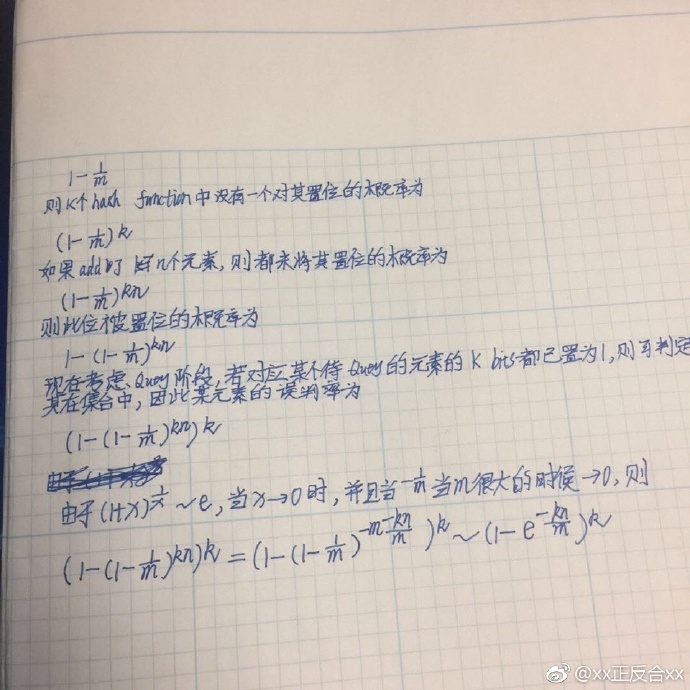 1-1/m
则k个hash function中没有一个对其置位的概率为
(1-1/m)^k
如果add了n个元素,则都未将其置位的概率为
(1-1/m)^kn
则此位被置位的概率为
1-(1-1/m)^kn
现在考虑Query阶段,若对应某个待Query的元素的K bits都已置为1,则可判定
其在集合中,因此某元素的误判率为
(1-(1-1/m)^kn)^k
由于(1+x)^1/x~e,当x→0时,并且当-1/m当m很大的时候→0,则
(1-(1-1/m)^kn)^k=(1-(1-1/m)^-m·-kn/m)^k~(1-e^-kn/m)^k
@xx正反合xx